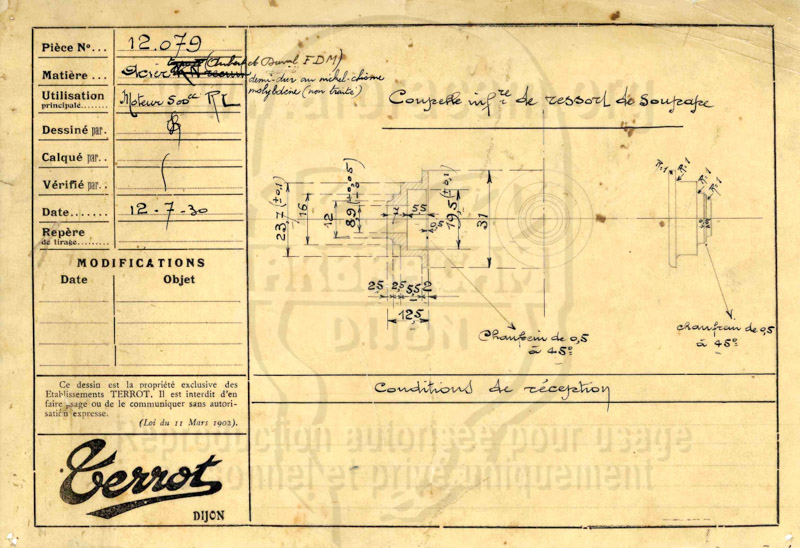 Pièce N°... 12.079
Matière... Acier (Aubert et Duval FDM)
demi-dur au nikel-chrome
molybdène (non traité)
Utilisation
principale........ Moteur 500cc RL
Dessiné par.
Calqué par..
Vérifié par..
Date....... 12-7-30
Repère
de tirage........
MODIFICATIONS
Date Objet
Ce dessin est la propriété exclusive des
Etablissements TERROT. Il est interdit d'en
faire usage ou de le communiquer sans autori-
sation expresse.
(Loi du 11 Mars 1902).
Terrot
DIJON
Coupelle infre de ressort de soupape
23,7 (±0,1)
16
12
8,9
55
19,5 (±0,1)
31
2,5 2,5 5,5 2
12,5
Chanfrein de 0,5
à 45°
R.1 R.1 R.1
chanfrein de 0,5
à 45°
Conditions de réception
ARBRACAM
DIJON
Reproduction autorisée pour usage
personnel et privé uniquement